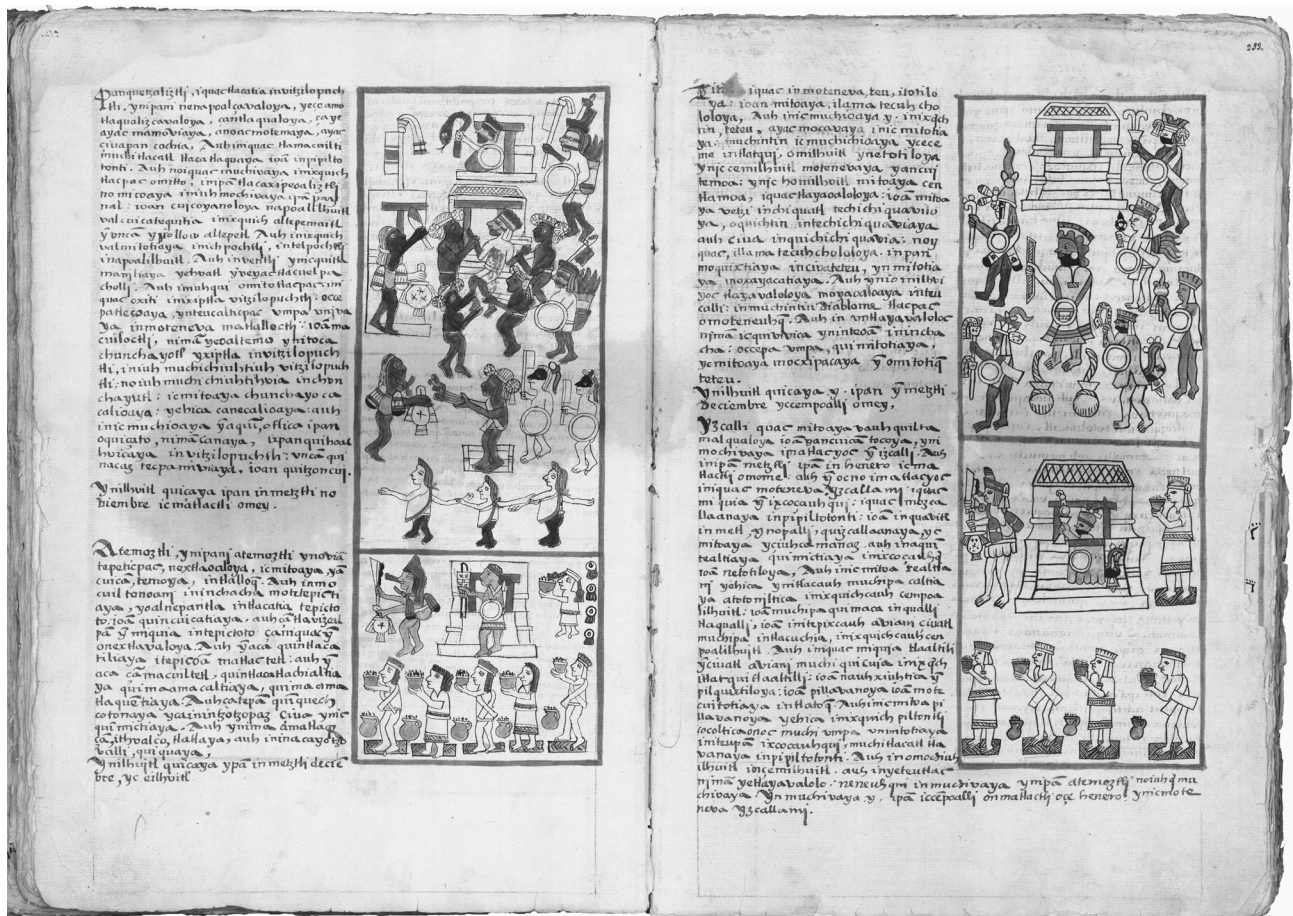 Panquetzaliztli, iquac tlacatia in vitzilopuch
tli. ynipani nenapoalçavaloya, yece amo
tlaqualizçavaloya, çan tlaqualoya, ça ye
ayac mamoviaya, anoac motemaya, ayac
civapan cochia, Auh iniquac tlamacuilti
muchi tlacatl tlacatlaquaya ioã inpipilto
tonti. Auh noiquac muchivaya inixquich
tlacpac omitto, inipã tlacaxipeoaliztli
no micoaya iniuh mochivaya ipã
nal: ioan cuicoyanoloya napoallilhuitl
valcuicatequitia inixquich altepemaitl
yollloco altepetl. Auh inixquich
valmitotiaya inichpochtli, intelpochtli
inapoalilhuitl. Auh
yehoatl
cholli. Auh iniuhqui omito tlacpac, in
quac oxiti inixipla vitzilopuchtli: occe
ynteucalticpac umpa
ya inmoteneva matlalloctli: ioã ma
cuiloctli, nimã yeoaltemo yn itoca
chunchayotl yxiptla invitzilopuch
tli, iniuh muchichiuhtiuh vitzilopuch
tli: no iuh muchichiuhtihvia inchon
chayutl: ic mitoaya chunchayo ca
calioaya: yehica canecalioaya: auh
inic muchioaya yn aqui, otlica ipan
oquicato, nimã canaya, ixpan quihoal
hvicaya in vitzilopuchtli: yncã qui
nacaztecpamiviaya, ioan quitzoncui.
ynilhuitl quicaya ipan inmetztli no
viembre ic matlactli omey.
Atemoztli, ynipani atemoztli
tepeticpac, nextlaoaloya, ic mitoaya, yã
cuicã, temoya, in tlalloq̃. Auh inmo
cuiltonoani ininchacha motepicti
aya, yoalnepantla intlacatia tepicto
to: ioã quincuicatiaya, auh cã tlavizcal
pã yn miquia intepictoto
onextlavaloya. Auh yn acã quintlaca
tiliaya itepicoã matlactetl: auh yn
acã çã macuiltetl, quintlacatlachialtia
ya quimaamacaltiaya, quimaama
tlaquetiaya. Auh catepã quiquech
cotonaya yca inintzotzopaz civa ynic
quimichtiaya. Auh ynimã
cã, ithvalco, tlatlaya, auh ininacayo
valli, quiquaya,
ynilhuitl quicaya ypã inmetztli decie
bre, yc eilhuitl
283.
Tititl iquac inmoteneva, teu, itotilo
ya: ioan mitoaya, ilamatecuhcho
loloya, Auh inic muchioaya y. inixq̃ch
tin, teteu, ayac moçavaya inic mitotia
ya: muchintin ic muchichioaya ycece
me intlatqui, omilhuitl ynetotiloya
ynic cemilhuitl motenevaya yancui
temoa: ynic homilhuitl mitoaya cen
tlamoa, iquac tlayaoaloloya: ioã mitoa
ya vetzi inchiquatl techichiquavilo
ya, oquichtin intechichiquaviaya
auh civa inquichichiquavia: noy
quac, ilamatecuhchololoya. inpan
moquixtiaya incivateteu, ynmitotia
ya inoxayacatiaya. Auh ynic milhvi
yoc tlayavaloloya moyaoaloaya inteu
calli: inmuchintin Diablome, tlacpac
omoteneuhq̃. Auh in untlayavaloloc
nimã ic quivivica ynintevã inincha
cha: occepa umpa, quimitotiaya,
yc mitoaya mocxipacaya yn omitotiq̃
teteu.
ynilhuitl quicaya y. ipan yn metztli
deciembre yccempoalli omey,
yzcalli quac mitoaya vauhquilta
malqualoya ioã yancuicam tocoya, yni
mochivaya ipa matlacyoc yn izcalli. Auh
inipã metztli ipã in henero ic ma
tlactli omome: auh yn oc no imatlacyoc
iniquac moteneva. yzcallami iquac
miquia yn ixcocauhqui: iquac
llaanaya inpipiltotonti: ioã inquavitl
inmetl, ynopalli, quizcallaanaya, yc
mitoaya
tealtiaya quimictiaya inixcocauhq̃
ioã netotiloya, Auh inic mitoa tealtla
ni yehica ynitlacauh muchipa caltia
ya atotoniltica inixquichcauh cempoa
lilhuitl: ioã muchipa quimaca inqualli
tlaqualli, ioã initepixcauh aviani civatl
muchipa intlacuchia, inixquichcauh cen
poalilhuitl. Auh iniquac miquia tlaaltilli
yn civatl aviani muchi quicuia inixq̃ch
itlatqui tlaaltilli: ioã nauhxiuhtica yn
pilquixtiloya: ioã pillavanoya ioã mote
cuitotiaya intlatoq̃. Auh inic mitoa pi
llavanoya yehica inixquich piltontli
coçoltica onoc muchi umpa vnmitotiaya
initeupã ixcocauhqui, muchi tlacatl tla
vanaya inpipiltotonti. Auh inomochiuh
ilhuitl ioncemilhuitl. auh inyeteutlac
nimã yetlayavalolo: neneuhqui inmuchivaya ynipã atemoztli noiuhq̃ mu
chivaya. yn muchivaya y. ipã iccẽpoalli onmatlactli oçe henero ynic mote
neva yzcallami.